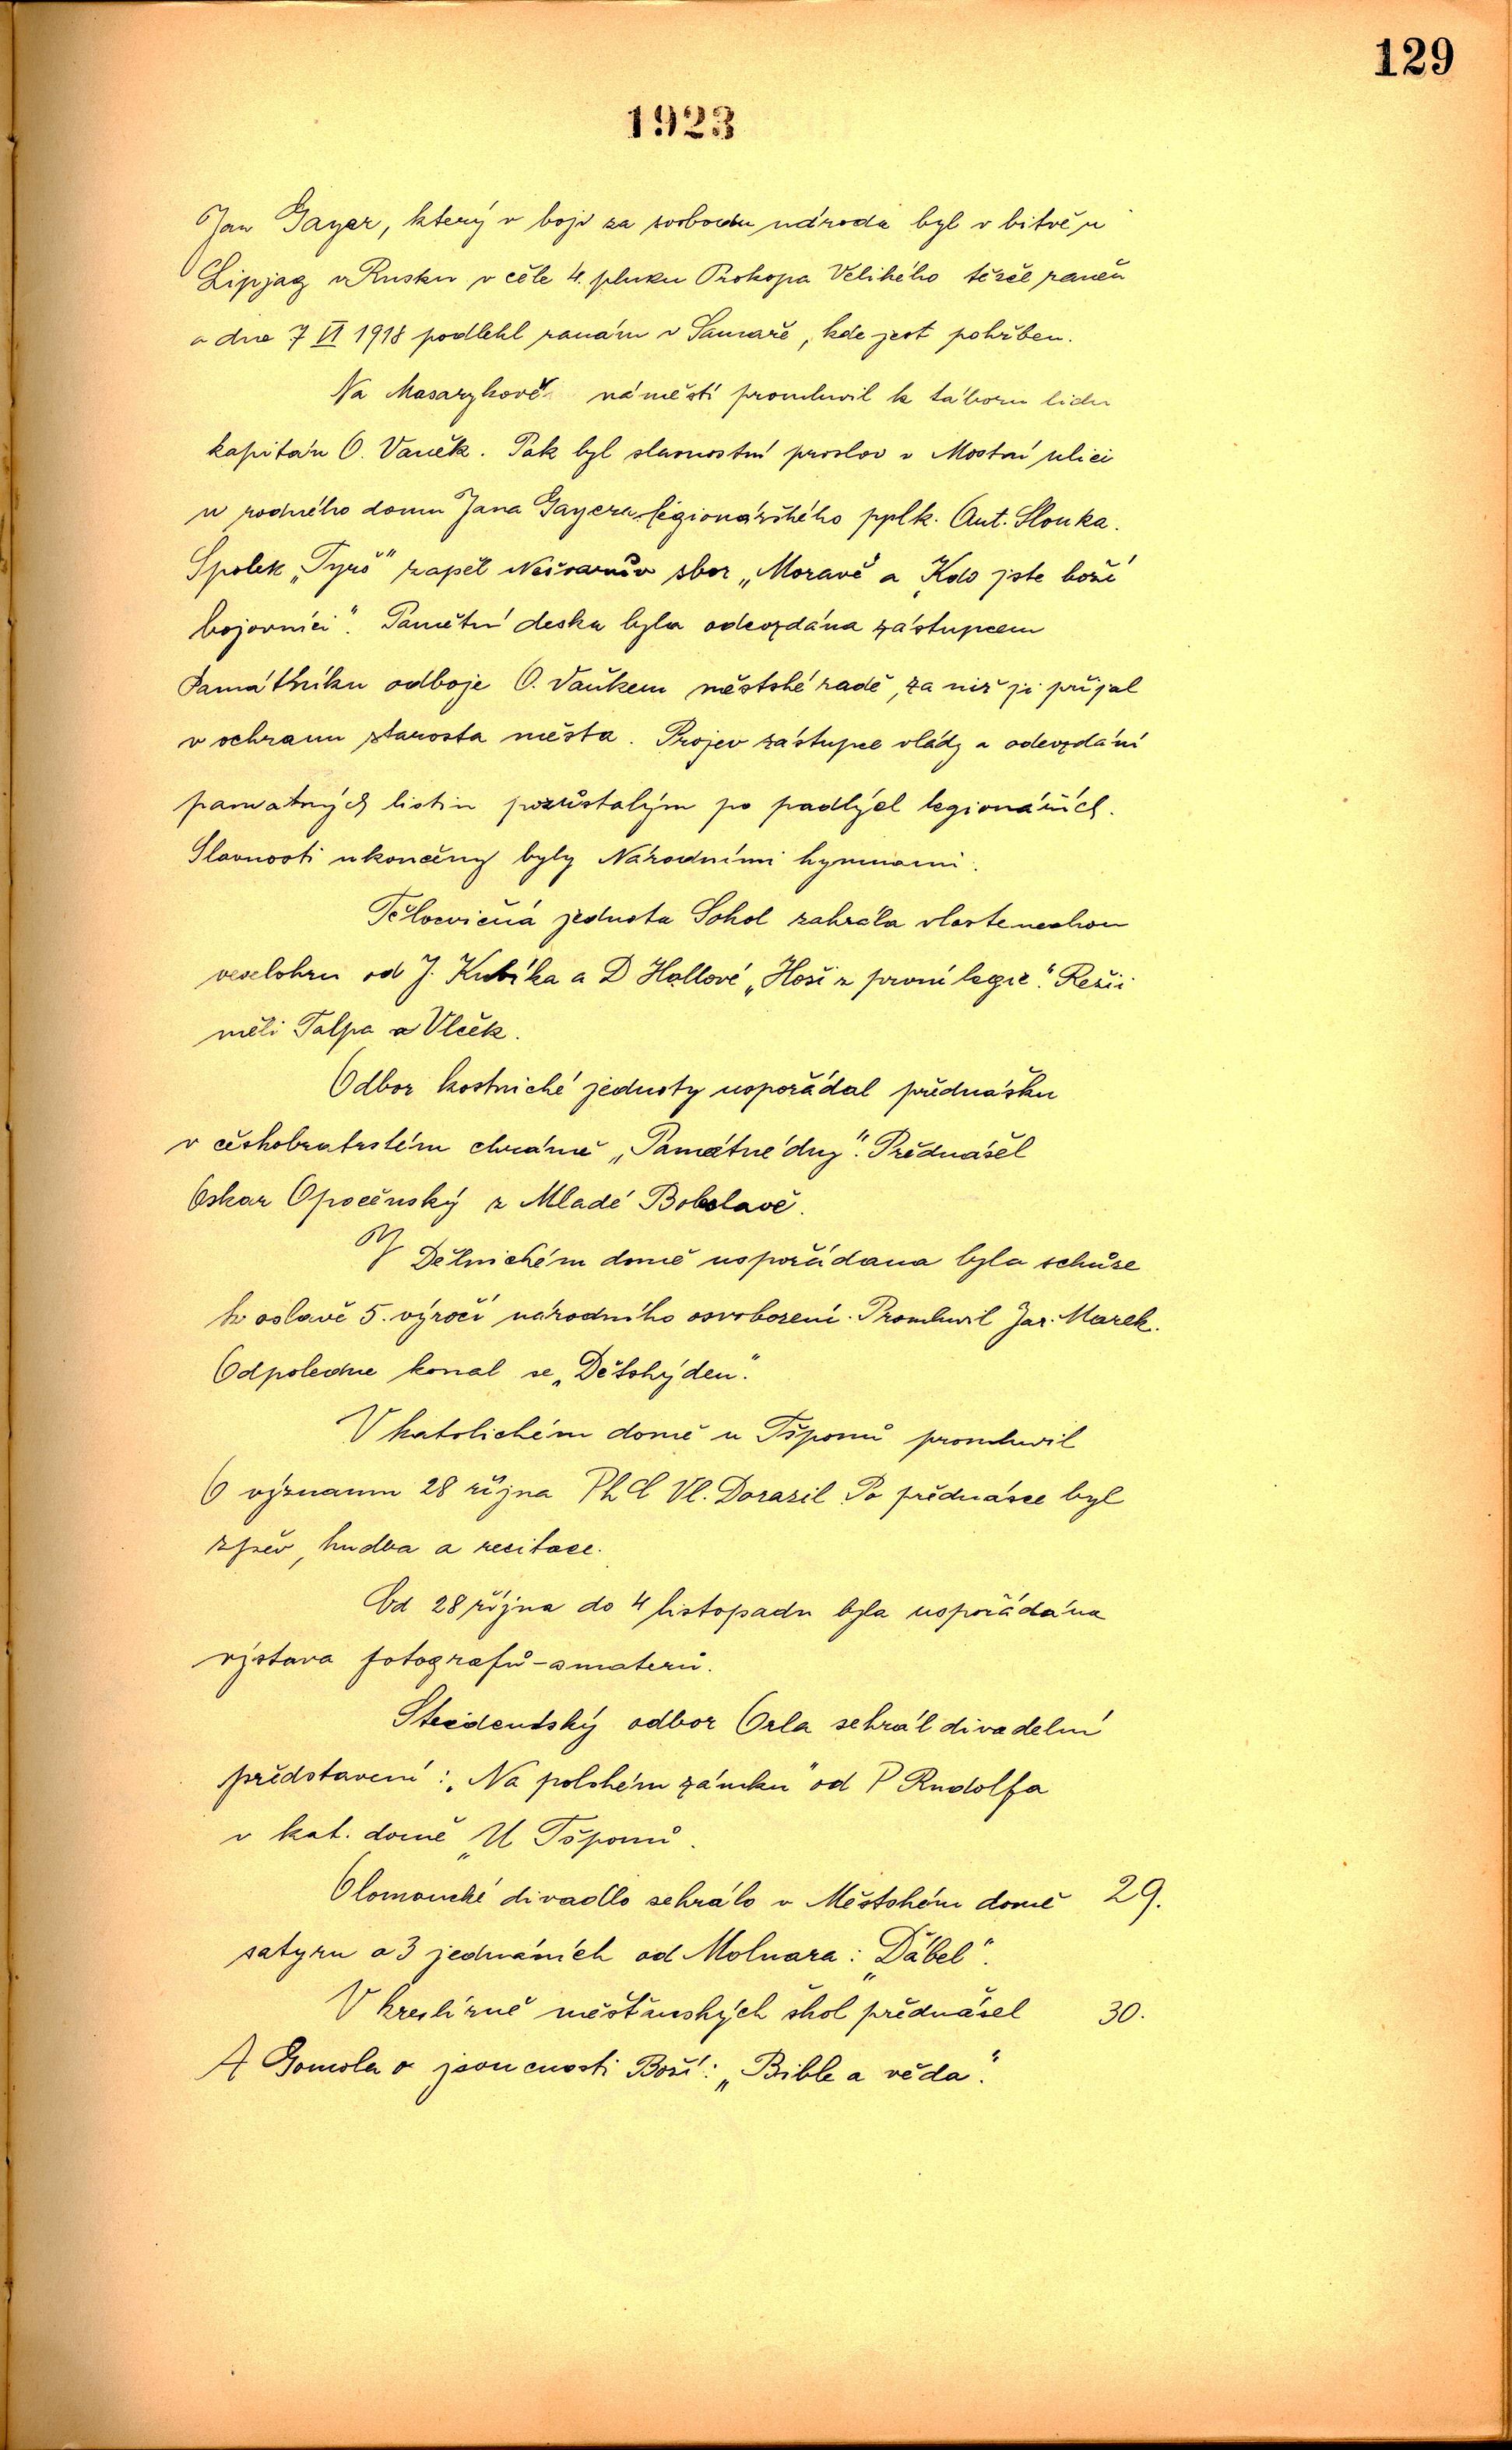 129
1923
Jan Gayer, který v boji za svobodu národa byl v bitvě u
Lipjag v Rusku v čele 4. pluku Prokopa Velikého těžce raněn
a dne 7 VI 1918 podlehl ranám v Samaře, kde jest pohřben.
Na Masarykově náměstí promluvil k táboru lidu
kapitán O. Vaněk. Pak byl slavnostní proslov v Mostní ulici
u rodného domu Jana Gayera legionářského pplk. Ant. Slouka.
Spolek „Tyrš" zapěl Nešverův sbor „Moravě" a „Kdo jste boží
bojovníci". Pamětní deska byla odevzdána zástupcem
Památníku odboje O. Vaňkem městské radě, za niž ji přijal
v ochranu starosta města. Projev zástupce vlády a odevzdání
památných listin pozůstalým po padlých legionářích.
Slavnosti ukončeny byly Národními hymnami.
Tělocvičná jednota Sokol zahrála vlasteneckou
veselohru od J. Kubíka a D Hallové „Hoši z první legie". Režii
měli Talpa a Vlček.
Odbor kostnické jednoty uspořádal přednášku
v českobratrském chrámě „Památné dny". Přednášel
Oskar Opočenský z Mladé Boleslavě.
V Dělnickém domě uspořádana byla schůze
k oslavě 5. výročí národního osvobození. Promluvil Jar. Marek.
Odpoledne konal se „Dětský den".
V katolickém domě u Tšponů promluvil
O významu 28 října PhC Vl. Dorazil. Po přednášce byl
zpěv, hudba a recitace.
Od 28 října do 4 listopadu byla uspořádána
výstava fotografů-amaterů.
Studentský odbor Orla sehrál divadelní
představení: „Na polském zámku" od P Rudolfa
v kat. domě „U Tšponů.
Olomoucké divadlo sehrálo v Městském domě 29.
satyru o 3 jednáních od Molnara: „Ďábel".
V kreslírně měšťanských škol přednášel 30.
A Gomola o jsoucnosti Boží: „Bible a věda".